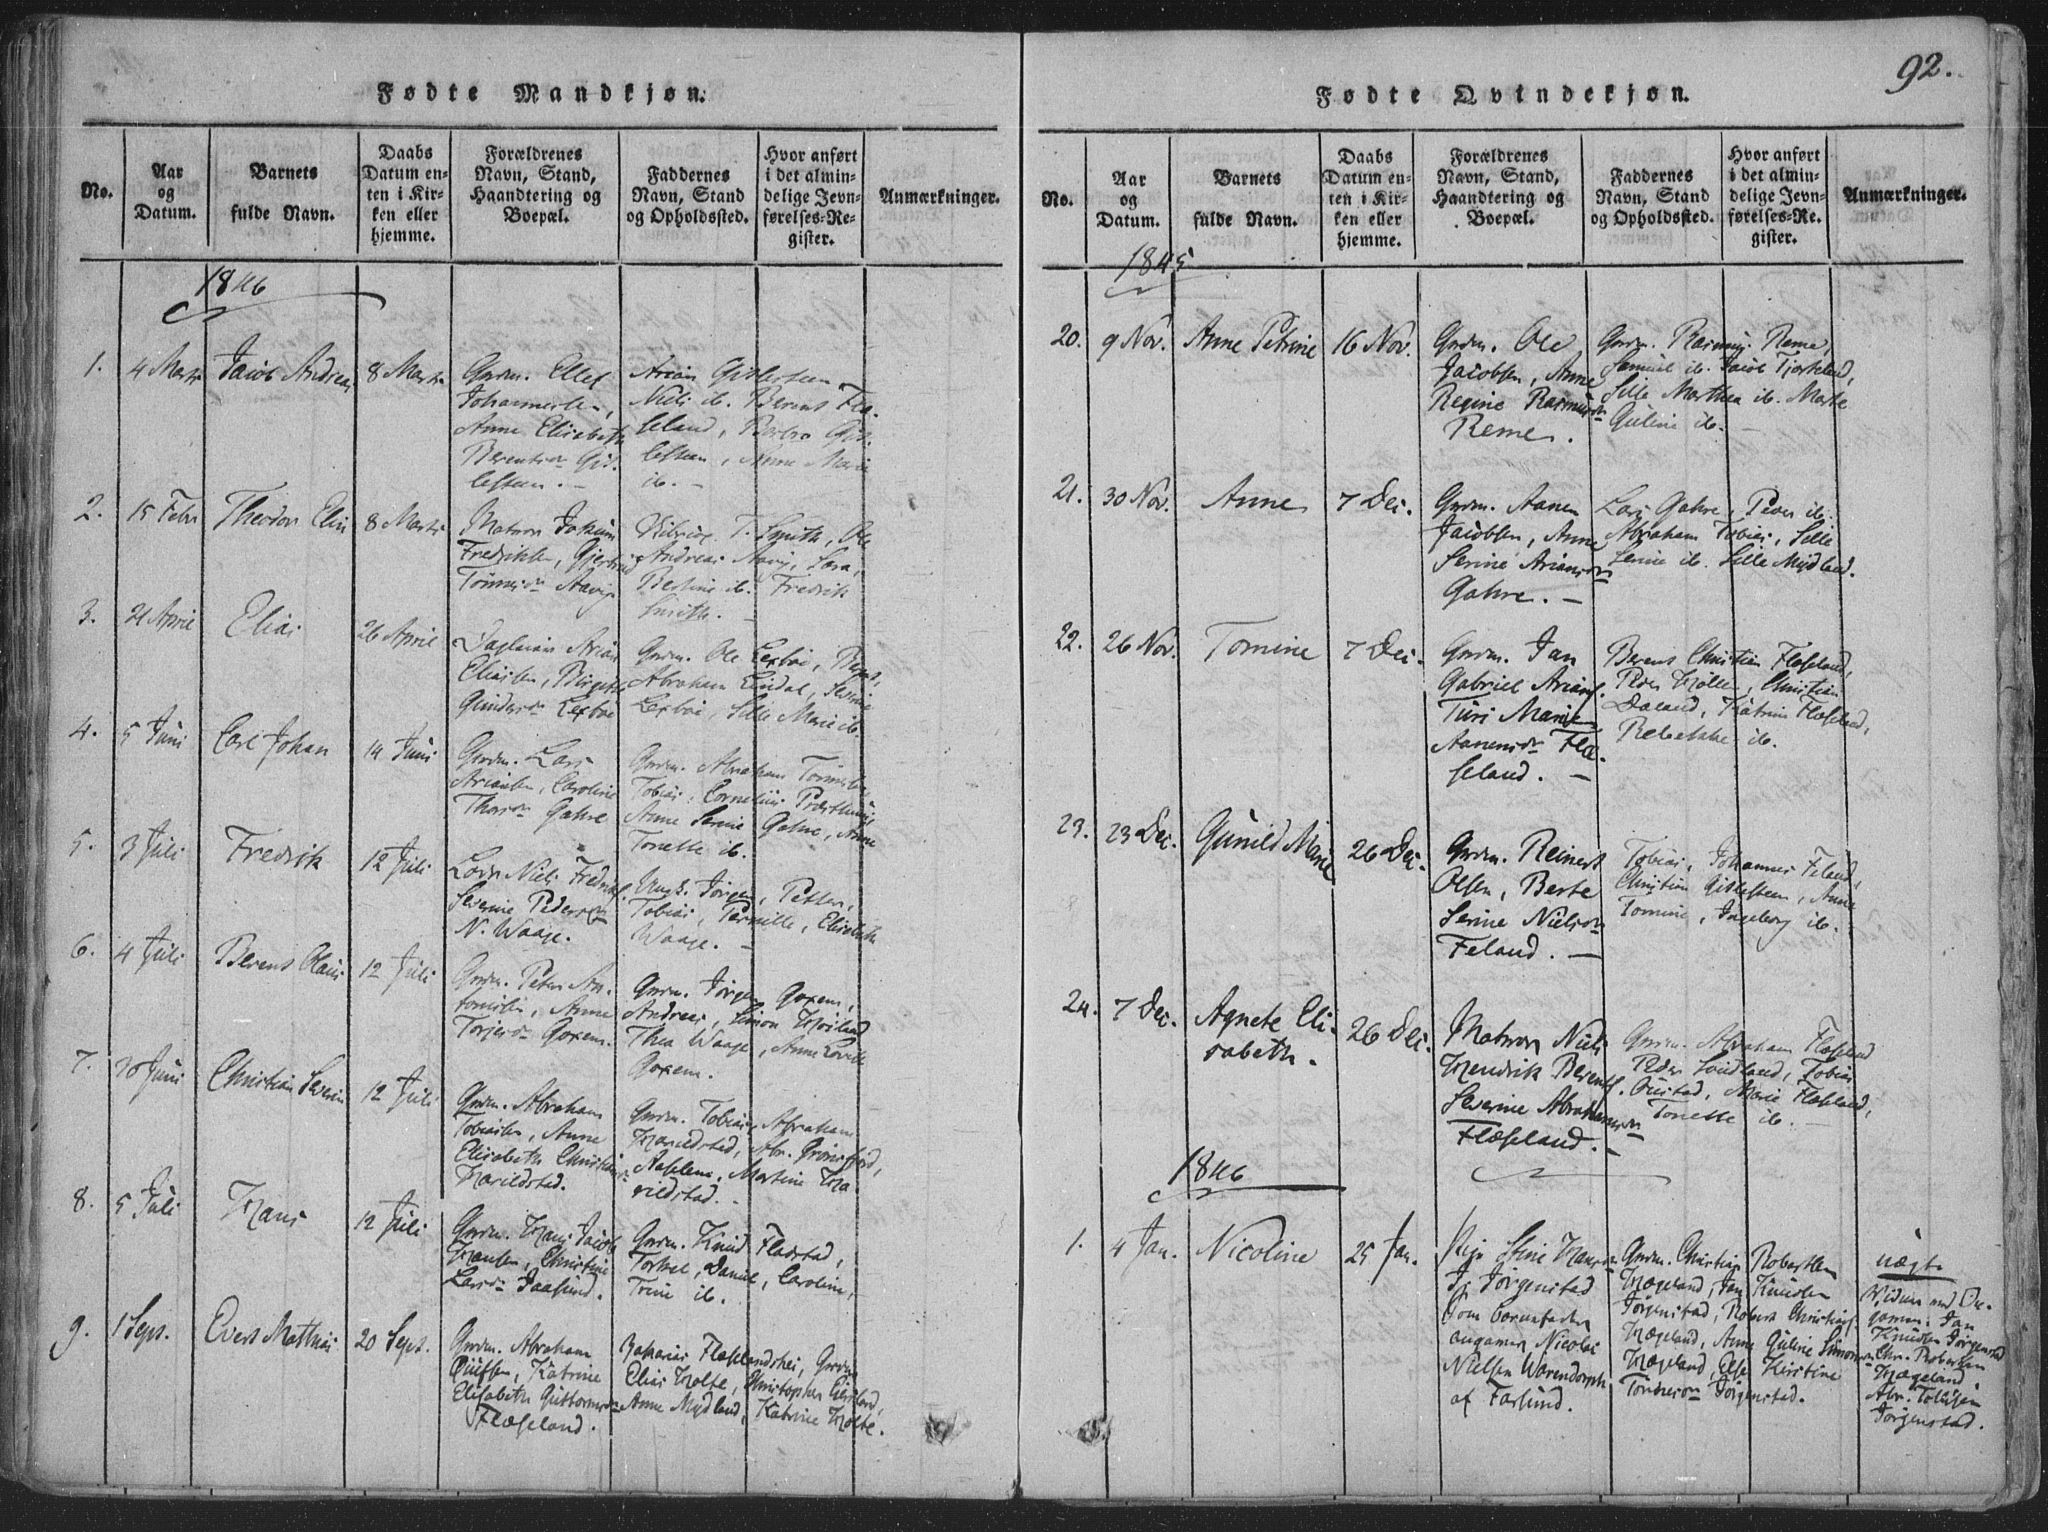 Fødte Mandkjøn.
No.
Aar
og
Datum.
Barnets
fulde Navn.
Daabs
Datum en-
ten i Kir-
ken eller
hjemme.
Forældrenes
Navn, Stand,
Haandtering og
Boepæl.
Faddernes
Navn, Stand
og Opholdssted.
Hvor anført
i det almin-
delige Jevn-
førelses-Re-
gister.
Anmærkninger.
1846
1.
4 Marts
Jacob Andreas
8 Marts
Gmdm. Ellef
Johannesen,
Anne Elisabeth
Berentsdr Gis-
lefsen. -
Nils ib. Berent Flæ-
seland, Barbro Gis-
lefsen, Anne Marie
ib. -
2.
15 Febr
Theodor Elin
8 Marts
Matros Jochum
Fredriksen, Gjertrud
Tønnesdr Aavig
T. Smith, Ole
Andreas Aavig, Sara,
Bertine ib. Fredrik
Smith. -
3.
21 April
Elias
26 April
Eliassen, Birgitte
Gundersdr Lexboe
Gmdm. Ole Lexboe,
Abraham Lindal, Serine
Lexboe, Sille Marie ib.
4.
5 Juni
Carl Johan
14 Juni
Gmdm. Lars
Ariansen, Caroline
Thorsdr Gahre
Gmdm. Abraham
Tobias, Cornelius
Anne Serine Gahre, Anne
Tonette ib.
5.
3 Juli
Fredrik
12 Juli
Lods Niels Fredriks.
Severine Pedersdr
N. Waage.
Ungk. Jørgen, Petter,
Tobias, Pernille, Elisabeth
Waage. -
6.
4 Juli
Berent Olaus
12 Juli
Gmdm. Peter An-
tonisen, Anne
Torjersdr Goxem.
Gmdm. Jørgen Goxem,
Andreas, Simon
Thea Waage, Anne Lovise
Goxem.
7.
30 Juni
Christian Severin
12 Juli
Gmdm. Abraham
Tobiassen, Anne
Elisabeth Christiansdr
Harildstad.
Gmdm. Tobias, Abraham
Harildstad, Abr. Grønsfjord,
Martine Ha-
rildstad. -
8.
5 Juli
Hans
12 Juli
Gmdm. Hans Jacob
Hansen, Christine
Larsdr Jaasund.
Gmdm. Knud Fladstad,
Torkel, Daniel, Caroline,
Trine ib.
9.
1 Sept.
Evert Mathias
20 Sept.
Gmdm. Abraham
Katrine
Elisabeth Guttormsdr
Flæseland.
Zakarias Flæselandshei,
Elias Holte, Christopher
Anne Mydland, Katrine Holte.
92.
Fødte Qvindekjøn.
No.
Aar
og
Datum.
Barnets
fulde Navn.
Daabs
Datum en-
ten i Kir-
ken eller
hjemme.
Forældrenes
Navn, Stand,
Haandtering og
Boepæl.
Faddernes
Navn, Stand
og Opholdssted.
Hvor anført
i det almin-
delige Jevn-
førelses-Re-
gister.
Anmærkninger.
1845
20.
9 Nov.
Anne Petrine
16 Nov.
Gmdm. Ole
Jacobsen, Anne
Regine Rasmusdr
Reme.
Gmdm. Rasmus Reme,
Samuel ib. Jacob Tjorteland,
Sille Marthea ib. Marte
Guline ib. -
21.
30 Nov.
Anne
7 Dec.
Gmdm. Aanen
Jacobsen, Anne
Serine Ariansdr
Gahre. -
Lars Gahre, Peder ib.
Abraham Tobias, Sille
Serine ib. Sille Mydland.
22.
26 Nov.
Tomine
7 Dec.
Gmdm. Jan
Gabriel Arians.
Turi Marie
Aanensdr Flæ-
seland. -
Berent Christian Flæseland,
Peder Holte, Christian
Daland, Katrine Flæseland,
Rebekke ib.
23.
23 Dec.
Gunild Marie
26 Dec.
Gmdm. Reinert
Olsen, Berte
Serine Nielsdr
Feland. -
Tobias, Johannes Feland,
Christian Gislefsen, Anne
Tomine, Ingeborg ib.
24.
7 Dec.
Agnete Eli-
sabeth.
26 Dec.
Matros Niels
Hendrik Berents.
Severine Abrahamsdr
Flæseland. -
Gmdm. Abraham Flæseland
Peder Sundland, Tobias
Marie Flæseland,
Tonette ib. -
1846
1.
4 Jan.
Nicoline
25 Jan.
Pige Stine Hansdr
Jørgenstad
som barnefader
angaves Nicolai
Nielsen Warendorph
af Farsund.
Gmdm. Christian Robertsen
Hægeland, Jan Knudsen
Jørgenstad, Robert Christians.
Hægeland, Anne Guline Simonsdr
Hægeland, Else Kirstine
Tønnesdr Jørgenstad.
uægte
Vidner ved An-
givnen: Jan
Knudsen Jørgenstad
Chr. Robertsen
Hægeland
Abr. Tobiasen
Jørgenstad.